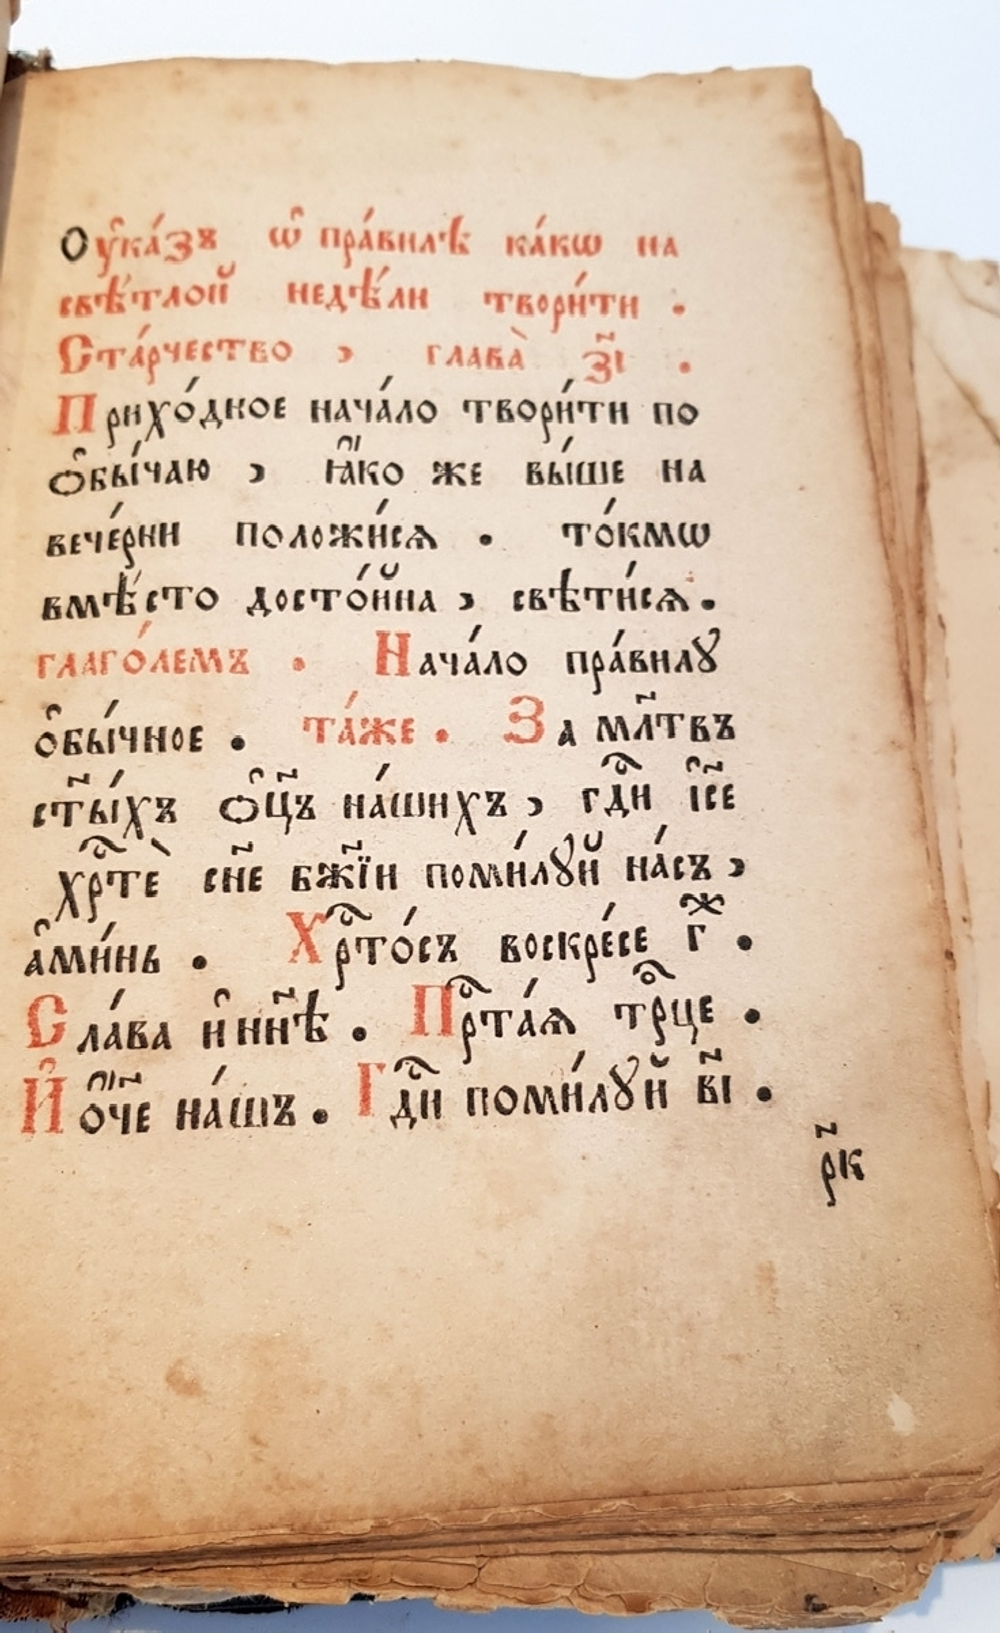 Оу҆ка́зъ ѡ҆ пра́вилѣ ка́кѡ на
свѣ́тлой недѣ́ли твори́ти .
Ста́рчество , глава̀ з҃і .
Прихо́дное нача́ло твори́ти по
ѻ҆бы́чаю , ꙗ҆́ко же вы́ше на
вече́рни положи́сѧ . то́кмѡ
вмѣ́сто досто́йна , свѣти́сѧ .
глаго́лемъ . Нача́ло пра́вилꙋ
ѻ҆бы́чное . та́же . За мл҃твъ
ст҃ы́хъ ѻ҆ц҃ъ на́шихъ , гдⷭ҇и і҆с҃е
хрⷭ҇тѐ сн҃е бж҃їи поми́лꙋй на́съ ,
а҆ми́нь . Хрⷭ҇то́съ воскре́се г҃ⷤ .
Сла́ва и҆ нн҃ѣ . Прⷭ҇та́ѧ трⷪ҇це .
И҆ ѻ҆́ч҃е на́шъ . Гдⷭ҇и поми́лꙋй в҃і .
р҃к